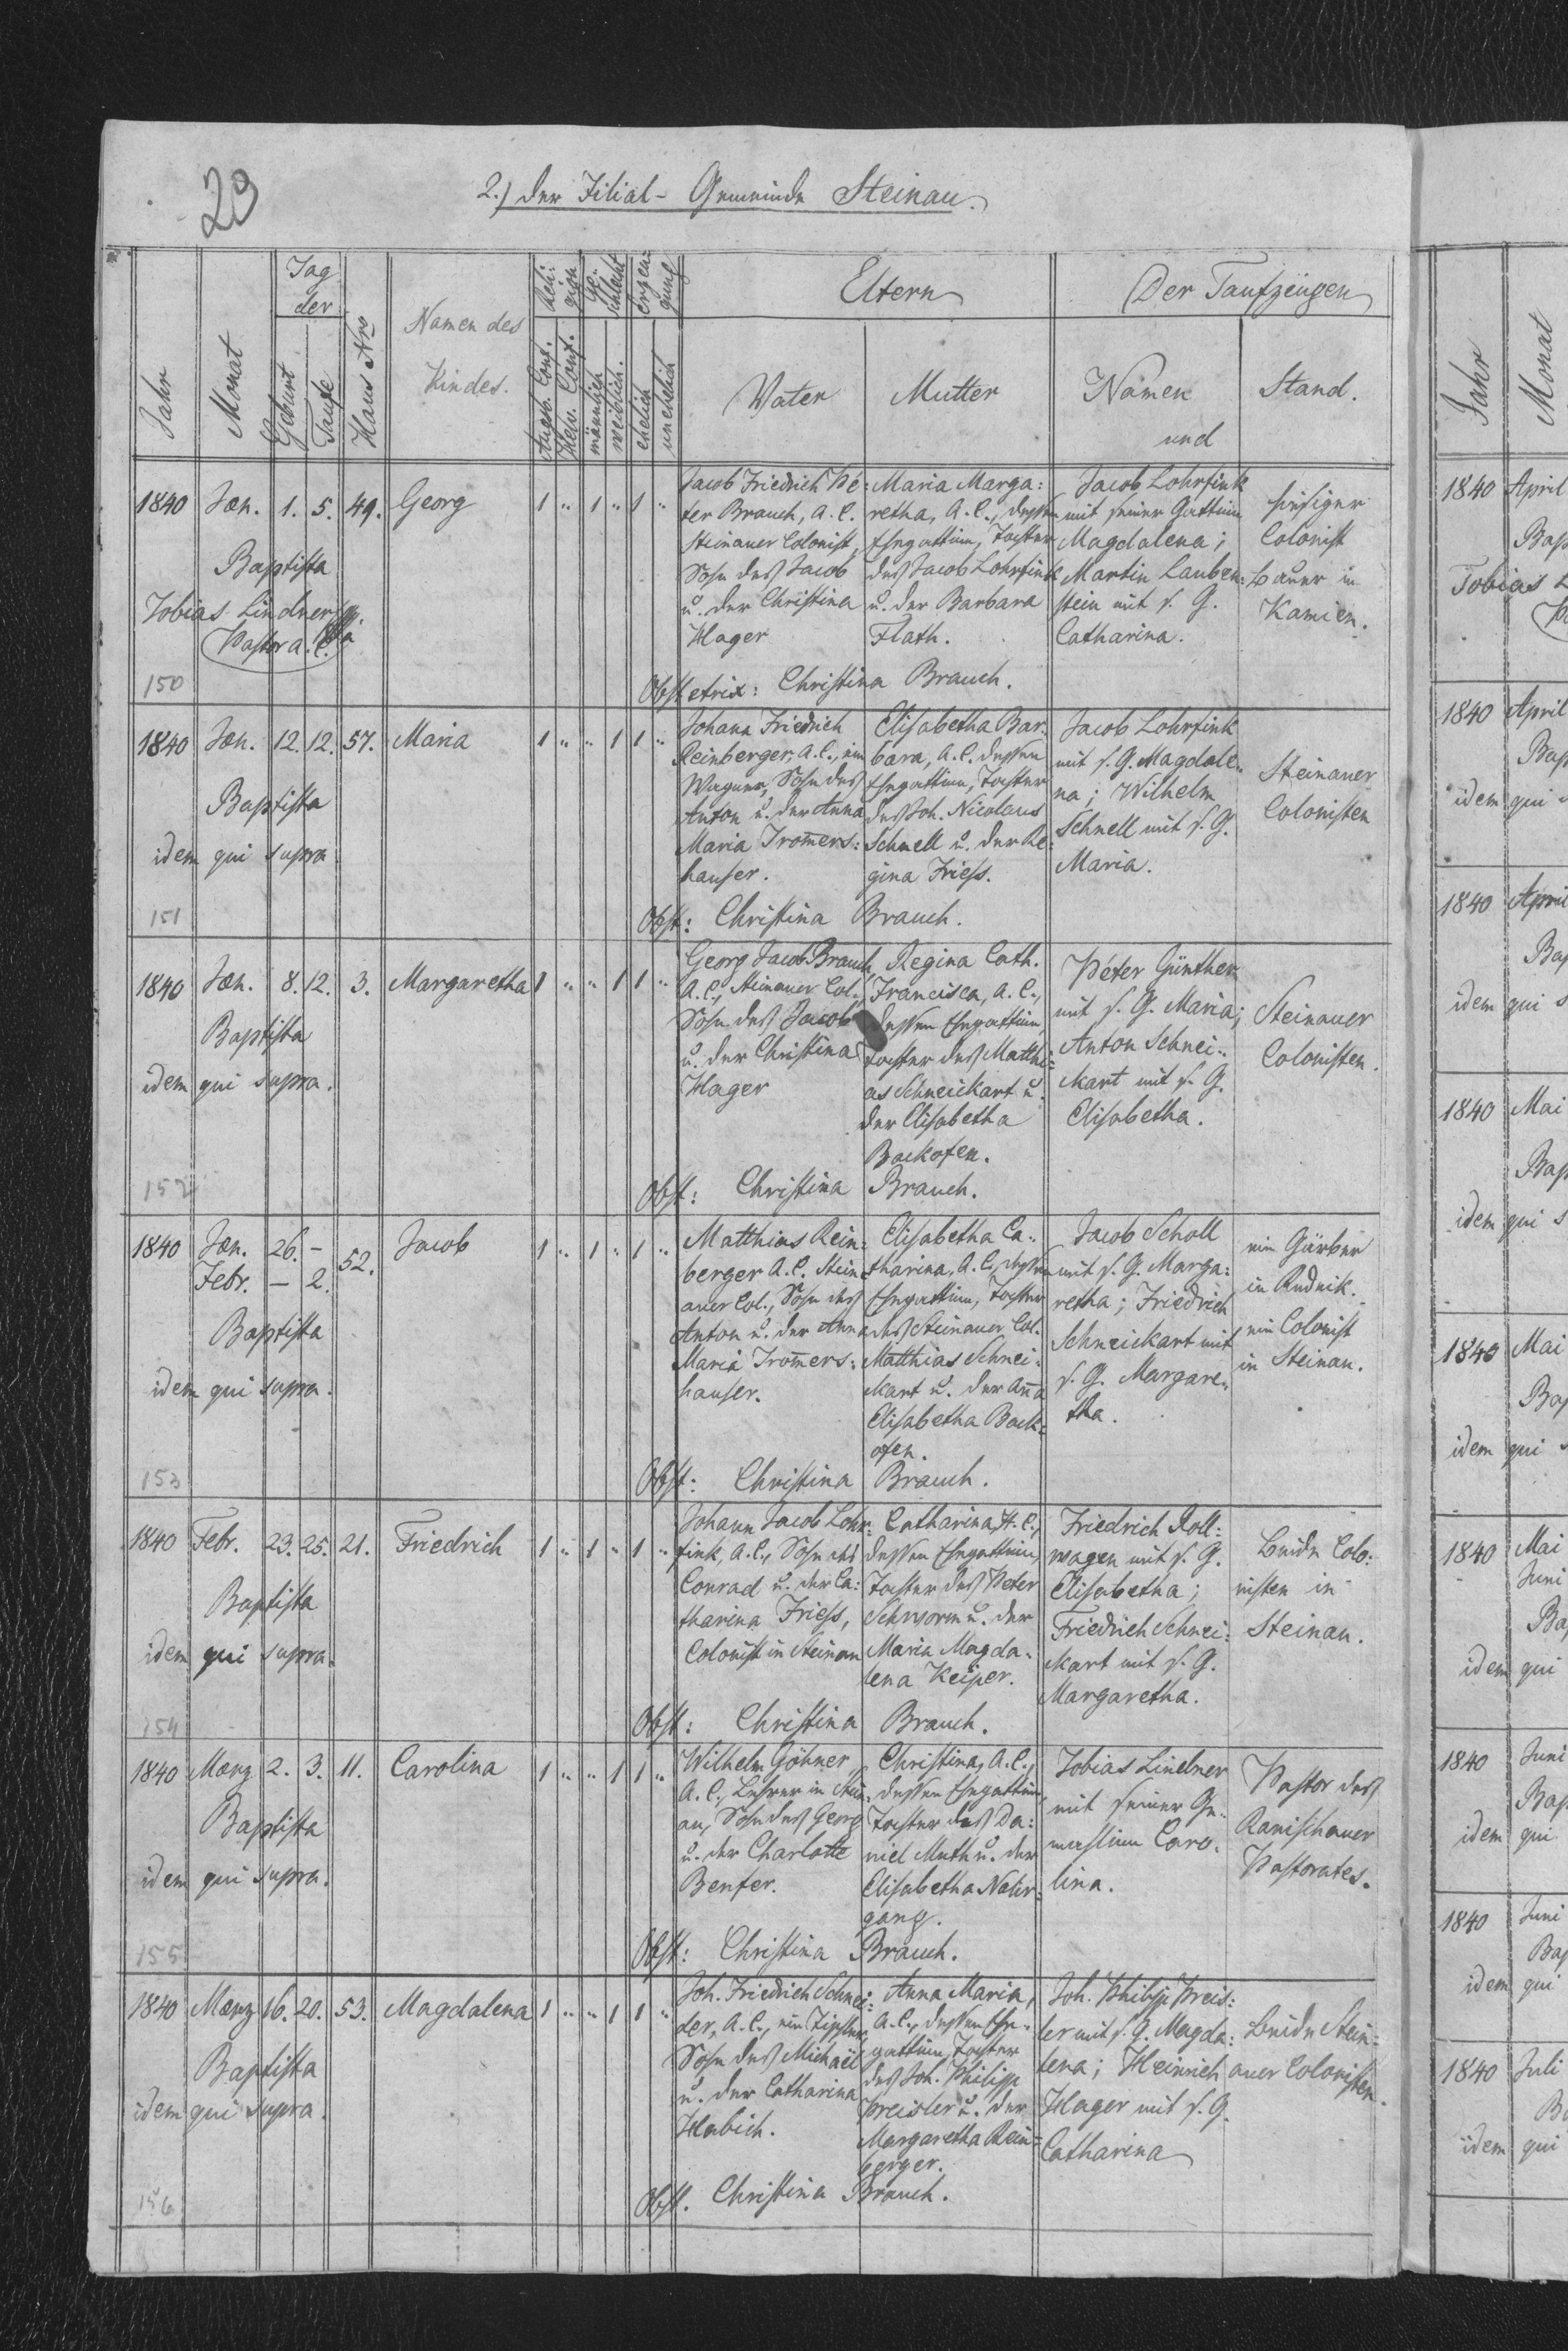 29
2.) der Filial-Gemeinde Steinau.
Jahr
Monat
Tag der
Geburt
Taufe
Haus Nro
Namen des
Kindes.
Reli:
gion
Augsb. Conf.
Helv. Conf.
Ge:
schlecht
männlich
weiblich.
Erzeu:
gung
ehelich
unehelich
Eltern
Vater
Mutter
Der Taufzeugen
Namen
und
Stand.
1840 Jæn. 1. 5. 49. Georg 1 " 1 " 1 "
Baptista
Tobias Lindner
Pastor A. C.
Jacob Friedrich Pe:
ter Brauch, A. C.
Steinauer Colonist,
Sohn des Jacob
u. der Christina
Hager
Maria Marga:
retha, A. C., dessen
Ehegattinn, Tochter
des Jacob Lohrfink
u. der Barbara
Flath.
Jacob Lohrfink
mit seiner Gattinn
Magdalena;
Martin Lauben:
stein mit s. G.
Catharina.
hiesiger
Colonist
Bauer in
Kamien.
150
Obstetrix: Christina Brauch.
1840 Jæn. 12. 12. 57. Maria 1 " " 1 1 "
Baptista
idem qui supra
Johann Friedrich
Reinberger, A. C., ein
Wagner, Sohn des
Anton u. der Anna
Maria Trom̄ers:
hauser.
Elisabetha Bar:
bara, A. C. dessen
Ehegattinn, Tochter
des Joh. Nicolaus
Schnell u. der Re:
gina Friess.
Jacob Lohrfink
mit s. G. Magdale:
na; Wilhelm
Schnell mit s. G.
Maria.
Steinauer
Colonisten
151
Obst: Christina Brauch.
1840 Jæn. 8. 12. 3. Margaretha 1 " " 1 1 "
Baptista
idem qui supra.
Georg Jacob Brauch,
A. C., Steinauer Col.,
Sohn des Jacob
u. der Christina
Hager
Regina Cath.
Francisca, A. C.,
dessen Ehegattinn,
Tochter des Matthi:
as Schneickart u.
der Elisabetha
Backofen.
Peter Günther
mit s. G. Maria;
Anton Schnei:
ckart mit s. G.
Elisabetha.
Steinauer
Colonisten.
152
Obst: Christina Brauch.
1840 Jæn. 26. – 52. Jacob 1 " 1 " 1 "
Febr. – 2.
Baptista
idem qui supra.
Matthias Rein:
berger A. C. Stein:
auer Col., Sohn des
Anton u. der Anna
Maria Trom̄ers:
hauser.
Elisabetha Ca:
tharina, A. C., dessen
Ehegattinn, Tochter
des Steinauer Col.
Matthias Schnei:
ckart u. der An̄a
Elisabetha Back:
ofen.
Jacob Scholl
mit s. G. Marga:
retha; Friedrich
Schneickart mit
s. G. Margare:
tha.
ein Gärber
in Rudnik.
ein Colonist
in Steinau.
153
Obst: Christina Brauch.
1840 Febr. 23. 25. 21. Friedrich 1 " 1 " 1 "
Baptista
idem qui supra.
Johann Jacob Lohr:
fink, A. C., Sohn des
Conrad u. der Ca:
tharina Friess,
Colonist in Steinau
Catharina, A. C.,
dessen Ehegattinn,
Tochter des Peter
Schworm u. der
Maria Magda:
lena Keiper.
Friedrich Roll:
wagen mit s. G.
Elisabetha;
Friedrich Schnei:
ckart mit s. G.
Margaretha.
Beide Colo:
nisten in
Steinau.
154
Obst: Christina Brauch.
1840 Mærz 2. 3. 11. Carolina 1 " " 1 1 "
Baptista
idem qui supra.
Wilhelm Göhner,
A. C., Lehrer in Stein:
au, Sohn des Georg
u. der Charlotte
Benfer.
Christina, A. C.,
dessen Ehegattinn
Tochter des Da:
niel Muth u. der
Elisabetha Nahr:
gang.
Tobias Lindner
mit seiner Ge:
mahlinn Caro:
lina.
Pastor des
Ranischauer
Pastorates.
155
Obst: Christina Brauch.
1840 Mærz 16. 20. 53. Magdalena 1 " " 1 1 "
Baptista
idem qui supra.
Joh. Friedrich Schnei:
der, A. C., ein Tischler,
Sohn des Michaël
u. der Catharina
Habich.
Anna Maria,
A. C., dessen Ehe:
gattinn, Tochter
des Joh. Philipp
Preisler u. der
Margaretha Rein:
berger.
Joh. Philipp Preis:
ler mit s. G. Magda:
lena; Heinrich
Hager mit s. G.
Catharina
Beide Stein:
auer Colonisten.
156
Obst. Christina Brauch.
Jahr
Monat
1840 April
Tobias
1840 April
idem qui
1840 April
idem qui
1840 Mai
idem qui
1840 Mai
idem qui
1840 Mai
Juni
idem qui
1840 Juni
idem qui
1840 Juni
idem qui
1840 Juli
idem qui